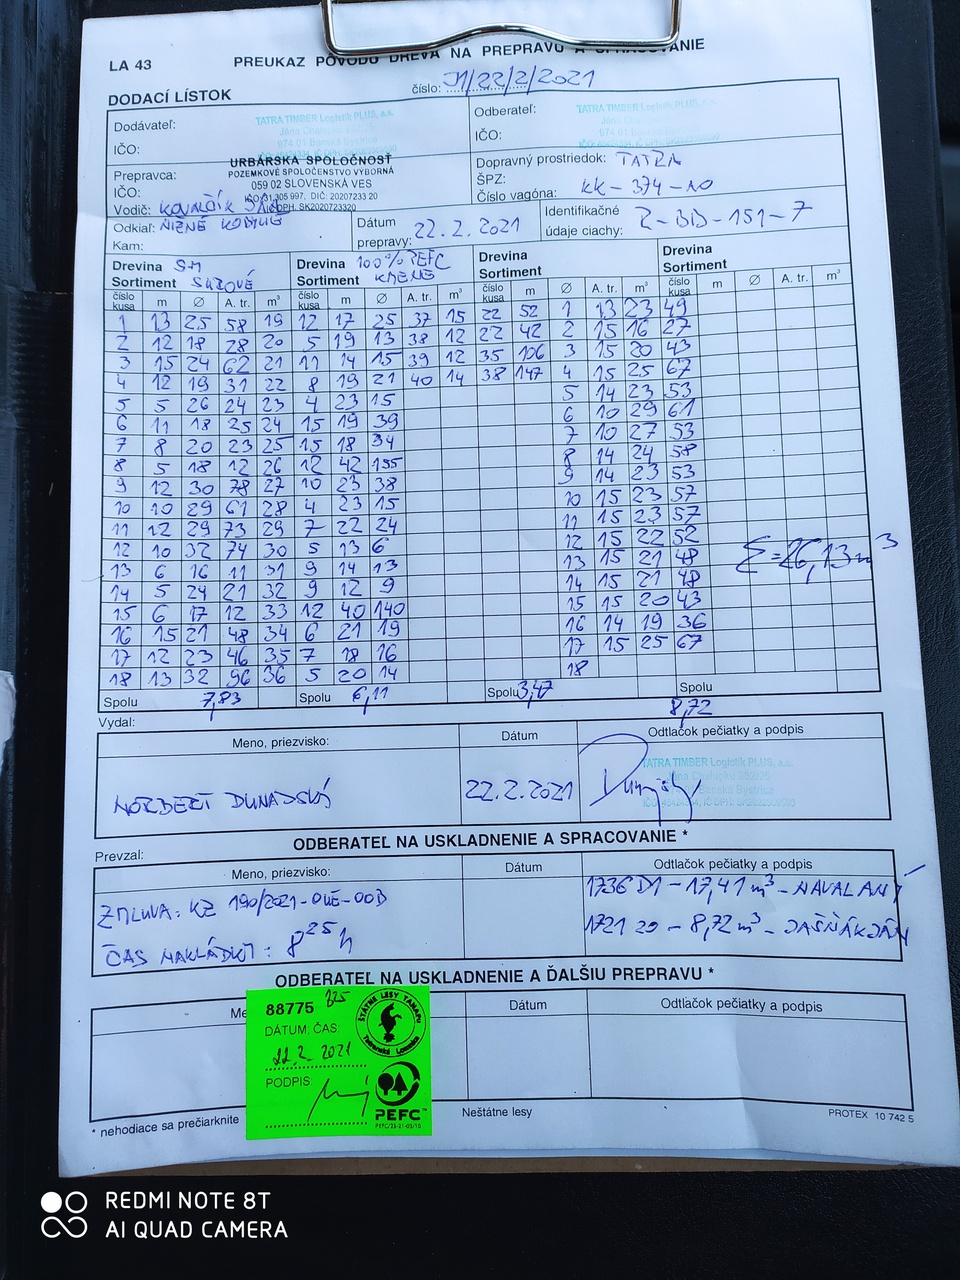 LA 43 PREUKAZ PÔVODU DREVA NA PREPRAVU A SPRACOVANIE
DODACÍ LÍSTOK číslo: 01/22/2/2021
Dodávateľ: TATRA TIMBER Logistik PLUS, a.s. Odberateľ: TATRA TIMBER Logistik PLUS, a.s.
Jána Chalupku
974 01 Banská Bystrica 974 01
IČO: IČO:
URBÁRSKA SPOLOČNOSŤ
Prepravca: POZEMKOVÉ SPOLOČENSTVO VÝBORNÁ Dopravný prostriedok: TATRA
059 02 SLOVENSKÁ VES ŠPZ:
IČO: 31 305 997, DIČ: 20207233 20 Číslo vagóna: KK-374-AO
Vodič: KOVALČÍK IČ DPH: SK2020723320
Odkiaľ: NIŽNÉ Dátum prepravy: 22.2.2021 Identifikačné údaje ciachy: Z-BD-151-7
Kam:
Drevina SM Drevina 100% PEFC Drevina Drevina
Sortiment Sortiment KMENE Sortiment Sortiment
číslo kusa m ∅ A. tr. m³ číslo kusa m ∅ A. tr. m³ číslo kusa m ∅ A. tr. m³ číslo kusa m ∅ A. tr. m³
1 13 25 58 19 12 17 25 37 15 22 52 1 13 23 49
2 12 18 28 20 5 19 13 38 12 22 42 2 15 16 27
3 15 24 62 21 11 14 15 39 12 35 106 3 15 20 43
4 12 19 31 22 8 19 21 40 14 38 147 4 15 25 67
5 5 26 24 23 4 23 15 5 14 23 53
6 11 18 25 24 15 19 39 6 10 29 61
7 8 20 23 25 15 18 34 7 10 27 53
8 5 18 12 26 12 42 155 8 14 24 58
9 12 30 78 27 10 23 38 9 14 23 53
10 10 29 61 28 4 23 15 10 15 23 57
11 12 29 73 29 7 22 24 11 15 23 57
12 10 32 74 30 5 13 6 12 15 22 52
13 6 16 11 31 9 14 13 13 15 21 48 Σ=26,13m³
14 5 24 21 32 9 12 9 14 15 21 48
15 6 17 12 33 12 40 140 15 15 20 43
16 15 21 48 34 6 21 19 16 14 19 36
17 12 23 46 35 7 18 16 17 15 25 67
18 13 32 96 36 5 20 14 18
Spolu 7,83 Spolu 6,11 Spolu 3,47 8,72 Spolu
Vydal:
Meno, priezvisko: Dátum Odtlačok pečiatky a podpis
TATRA TIMBER Logistik PLUS, a.s.
NORBERT DUNAJSKÝ 22.2.2021
Banská Bystrica
ODBERATEĽ NA USKLADNENIE A SPRACOVANIE *
Prevzal:
Meno, priezvisko: Dátum Odtlačok pečiatky a podpis
ZMLUVA: KZ 190/2021-OLE-OOD 1736 D1 - 17,41 m³ - NAVALANÝ
ČAS NAKLÁDKY: 8 25 h 1721 20 - 8,72 m³ - JAŠŇÁK JÁN
ODBERATEĽ NA USKLADNENIE A ĎALŠIU PREPRAVU *
Dátum Odtlačok pečiatky a podpis
88775
ŠTÁTNE LESY TANAPu
Tatranská Lomnica
DÁTUM, ČAS:
22.2.2021
PODPIS:
PEFC™
* nehodiace sa prečiarknite Neštátne lesy PROTEX 10 742 5
REDMI NOTE 8T
AI QUAD CAMERA